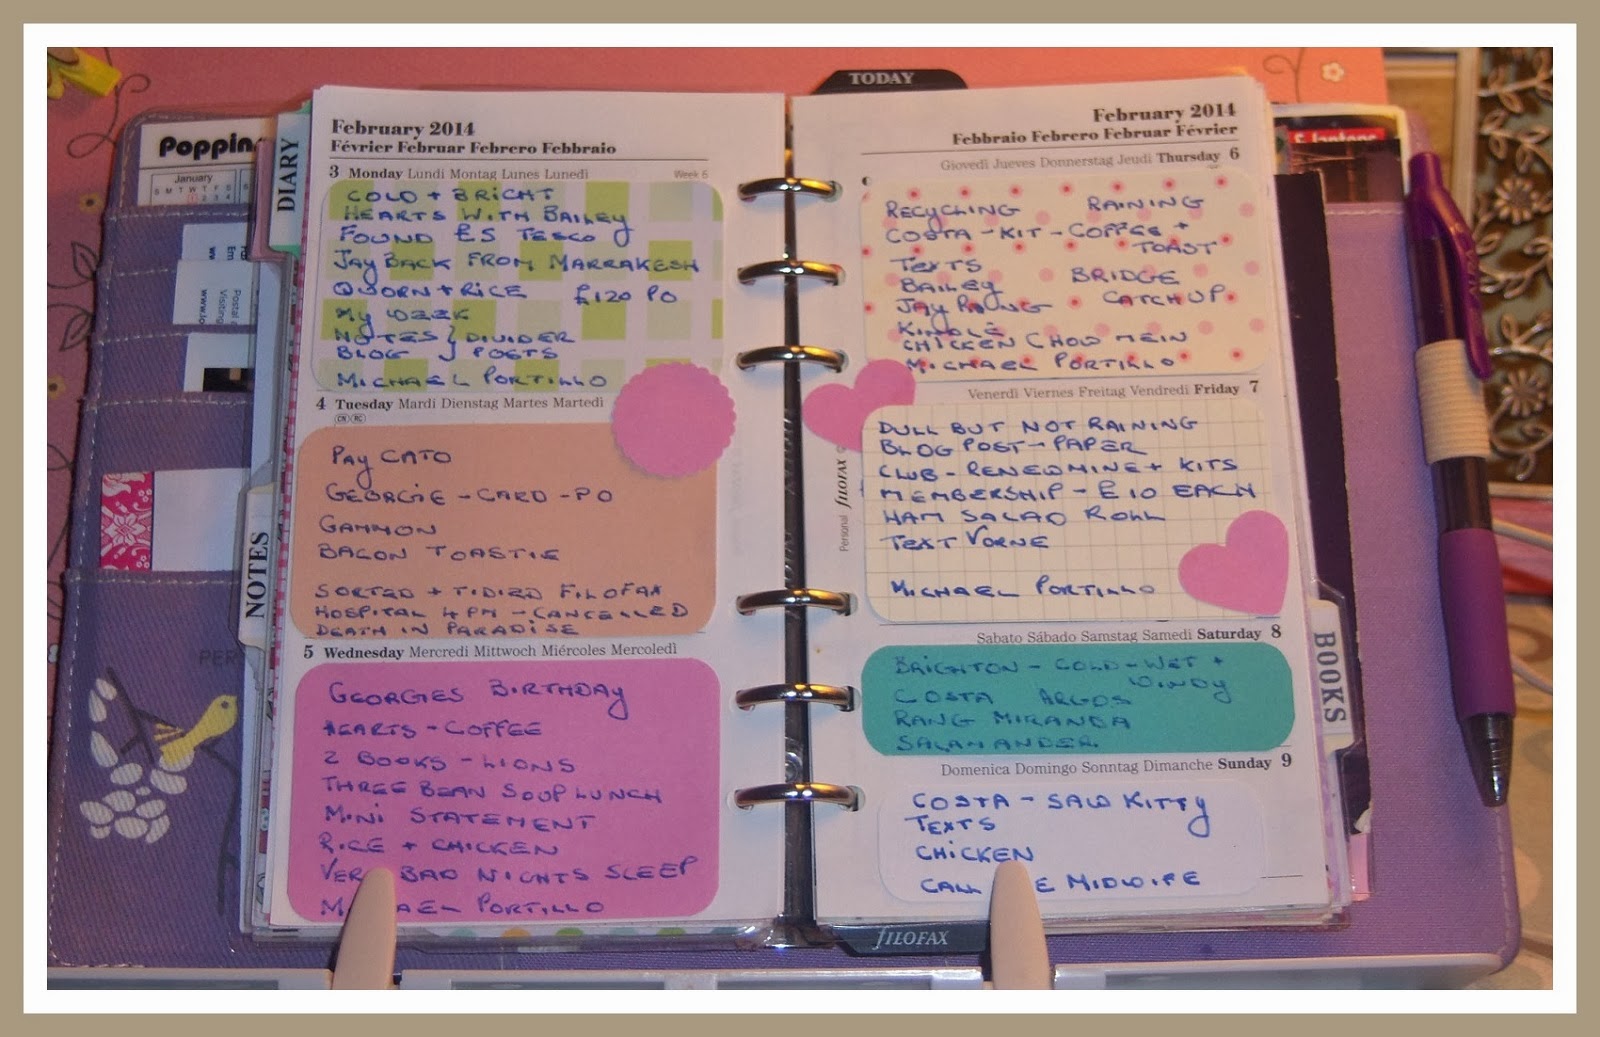 TODAY
Poppin
January
S M T W T F S
1 2 3 4
DIARY
NOTES
PER
February 2014
Février Februar Febrero Febbraio
3 Monday Lundi Montag Lunes Lunedì
Week 6
COLD + BRIGHT
HEARTS WITH BAILEY
FOUND £5 TESCO
JAY BACK FROM MARRAKESH
QUORN + RICE £120 PO
MY WEEK
NOTES } DIVIDER
BLOG } POSTS
MICHAEL PORTILLO
4 Tuesday Mardi Dienstag Martes Martedì
CN RC
PAY CATO
GEORGIE - CARD - PO
GAMMON
BACON TOASTIE
SORTED + TIDIED FILOFAX
HOSPITAL 4PM - CANCELLED
DEATH IN PARADISE
5 Wednesday Mercredi Mittwoch Miércoles Mercoledì
GEORGIES BIRTHDAY
HEARTS - COFFEE
2 BOOKS - LIONS
THREE BEAN SOUP LUNCH
MINI STATEMENT
RICE + CHICKEN
VER BAD NIGHTS SLEEP
M AEL PORTILLO
February 2014
Febbraio Febrero Februar Février
Giovedì Jueves Donnerstag Jeudi Thursday 6
RECYCLING RAINING
COSTA - KIT - COFFEE +
TOAST
TEXTS
BAILEY BRIDGE
JAY RANG CATCH UP
KINDLE
CHICKEN CHOW MEIN
MICHAEL PORTILLO
Venerdì Viernes Freitag Vendredi Friday 7
DULL BUT NOT RAINING
BLOG POST - PAPER
CLUB - RENEWED MINE + KITS
MEMBERSHIP - £10 EACH
HAM SALAD ROLL
TEXT VORNE
MICHAEL PORTILLO
Personal filofax
Sabato Sábado Samstag Samedi Saturday 8
BRIGHTON - COLD - WET +
WINDY
COSTA ARGOS
RANG MIRANDA
SALAMANDER
Domenica Domingo Sonntag Dimanche Sunday 9
COSTA - SAW KITTY
TEXTS
CHICKEN
CALL E MIDWIFE
filofax
BOOKS